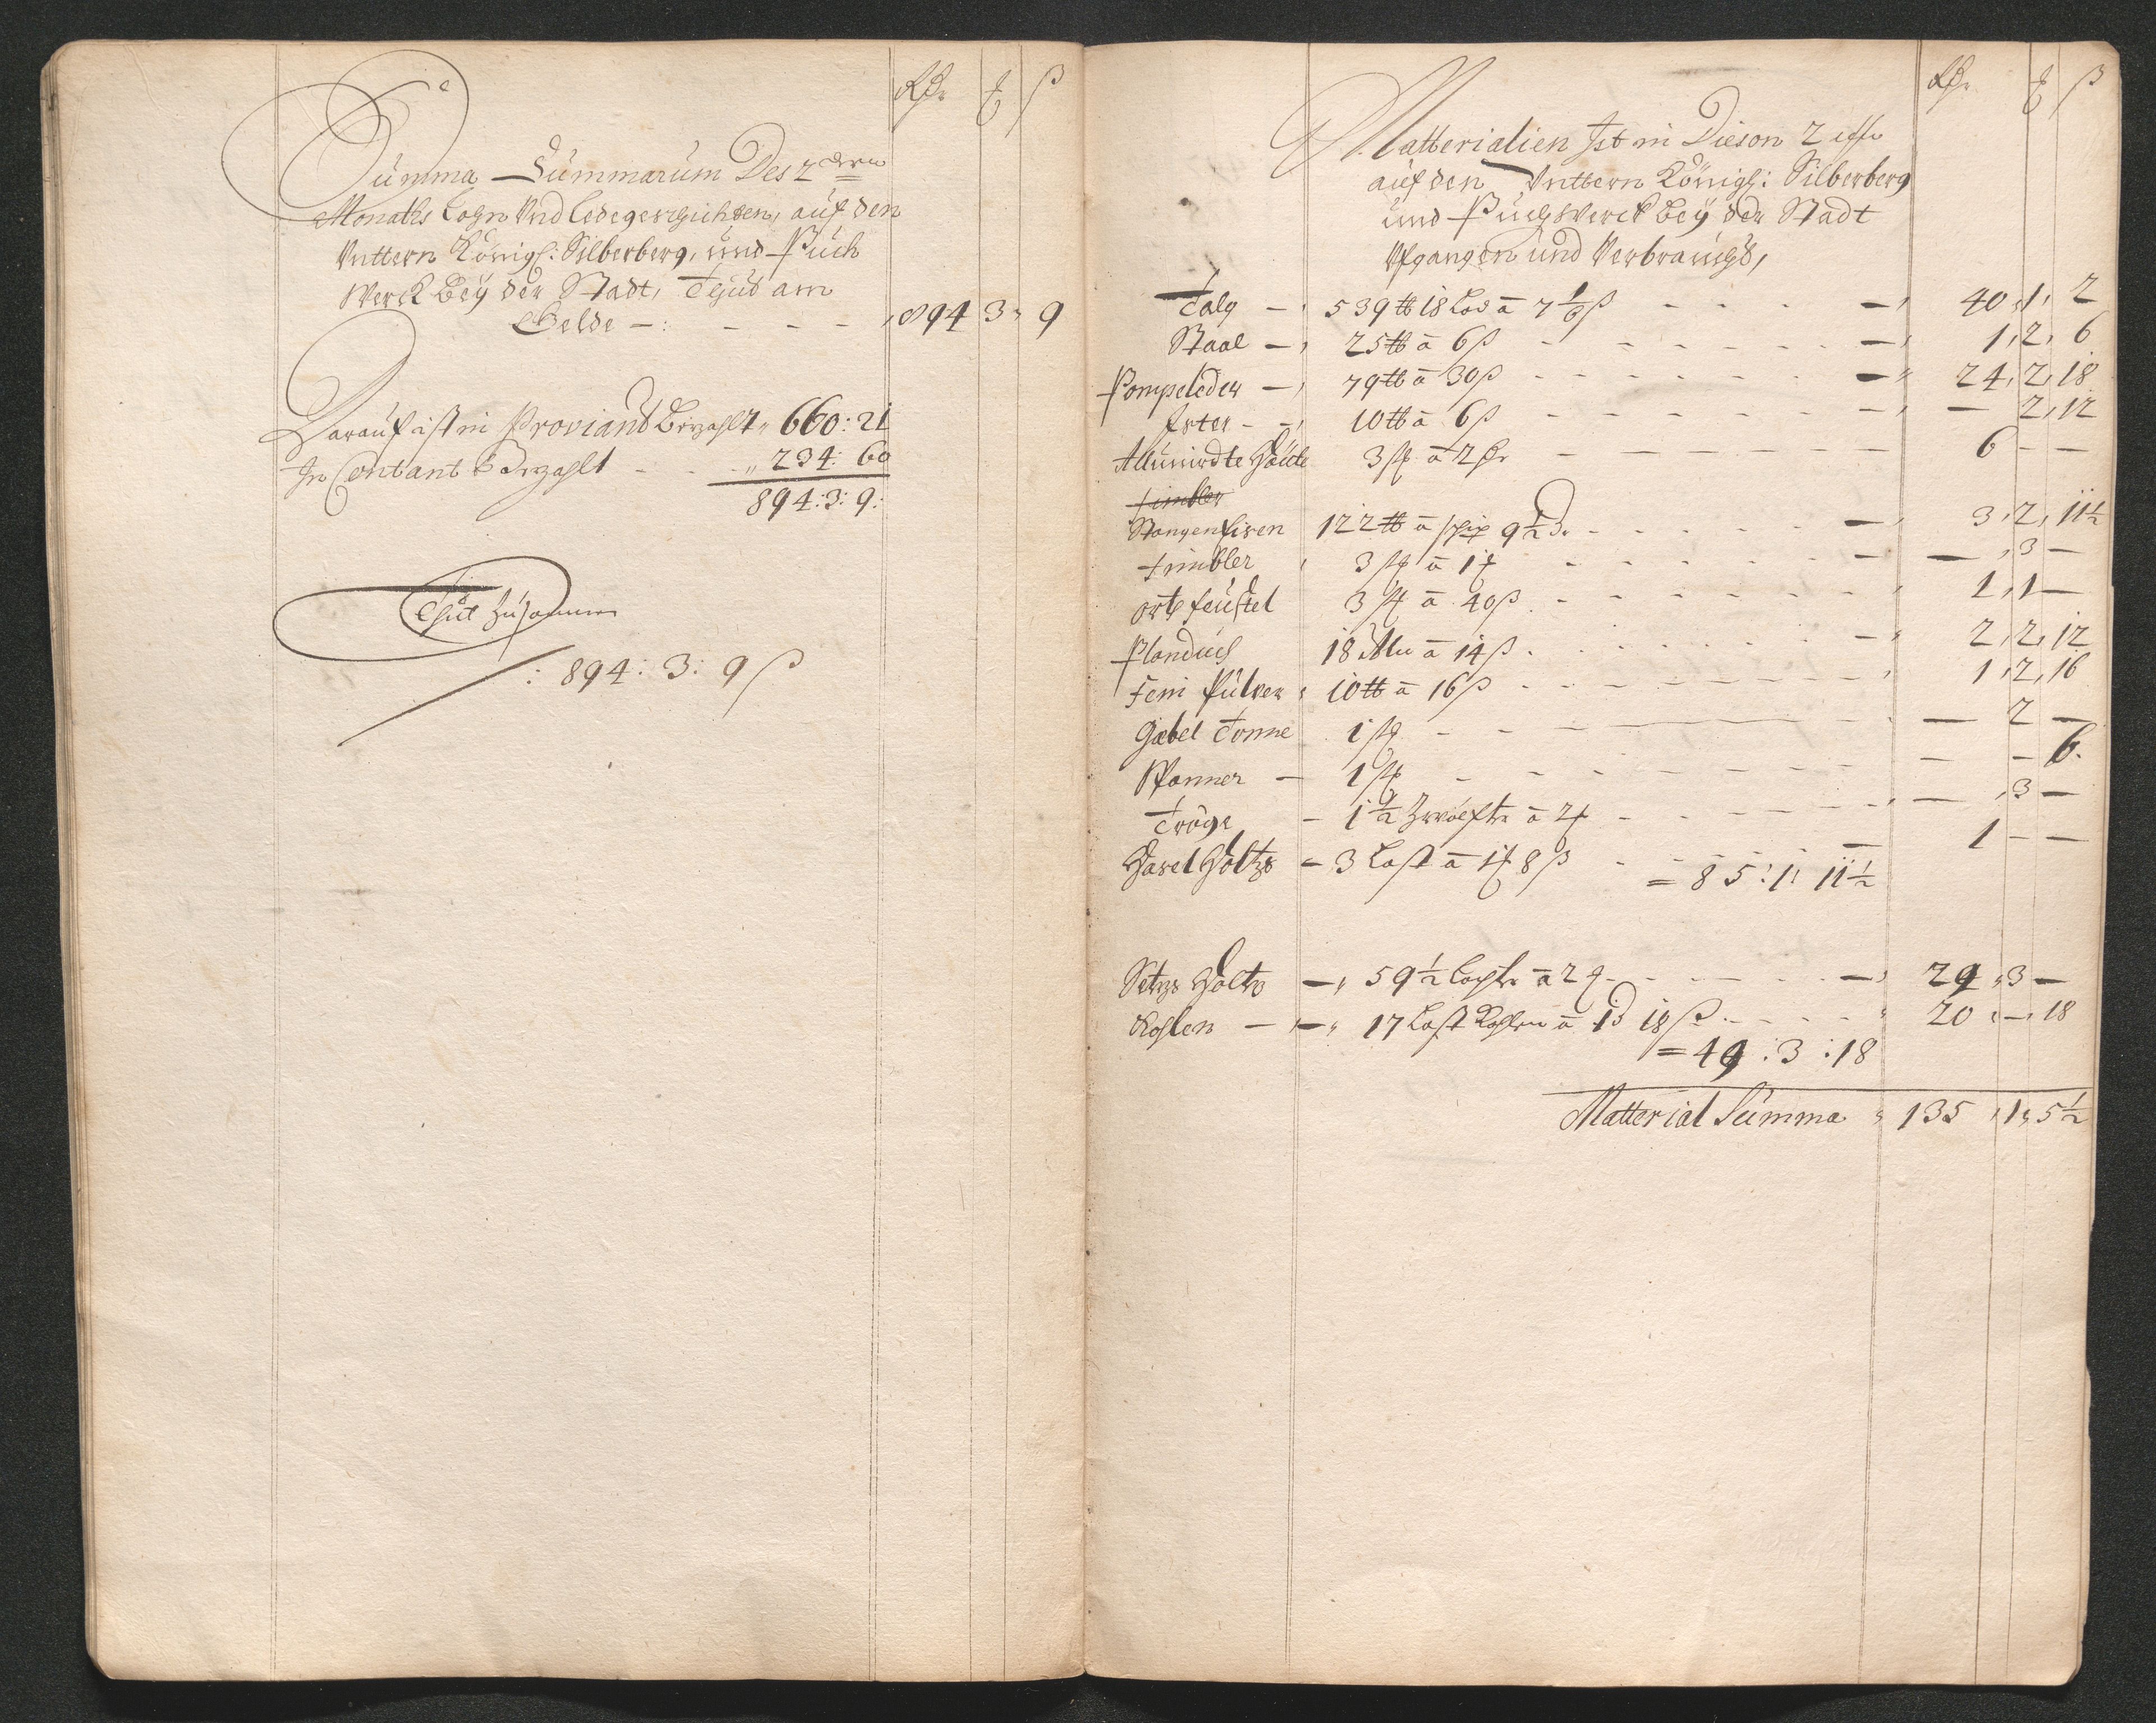 Rthr ß
Summa Summarum Des 2 dern
Monaths Lohn Vnd Ledegerzichsen, auf den
Vnttern Königl: Silberberg, und Puch
Werck Bey der Stadt, Thut am
Gelde —: - - - 894 3 9
Darauf ist in Proviand Bezahlt " 660: 21
In Contant Bezahlt - - " 234: 60
894: 3: 9:
Thut Zusammen
: 894: 3: 9 ß
Rthr ß
Matterialien Ist in Diesen 2
auf den Vnttern Königl: Silberberg
und Puchwerck Bey der Stadt
Vfgangen und Verbraucht,
Talg — 539 ℔ 18 Lod a 7 1/6 ß - - - 40 1 2
Staal — 25 ℔ a 6 ß - - - 1 2 6
Pompeleder — 79 ℔ a 30 ß - - - 24 2 18
Ister - - 10 ℔ a 6 ß - - - — 2 12
Allunirdte Häute 3 st a 2 Rthr - - - 6 — —
Fimbler
Stangen Eisen 122 ℔ a 9 1/2 d. - - - 3 2 11 1/2
Fimbler 3 st a 1 - - - — 3 —
ort feustel 3 st a 40 ß - - - 1 1 —
Planduch 18 Alu a 14 ß - - - 2 2 12
Fein Pulver 10 ℔ a 16 ß - - - 1 2 16
Gæbel Tonne 1 st - - - — 2 —
Pfanner — 1 st - - - — — 6.
Tröge - 1 1/2 Zwölftr a 2 - - - — 3 —
Hasel Holtz - 3 Last a 1 8 ß - - - 1 — —
= 85: 1: 11 1/2
Setz Holtz — 59 1/2 Lachtr a 2 - - - 29 3 —
Kohlen — 17 Last Kohlen a 1 18 ß - - - 20 — 18
= 49: 3: 18
Matterial Summa 135 1 5 1/2